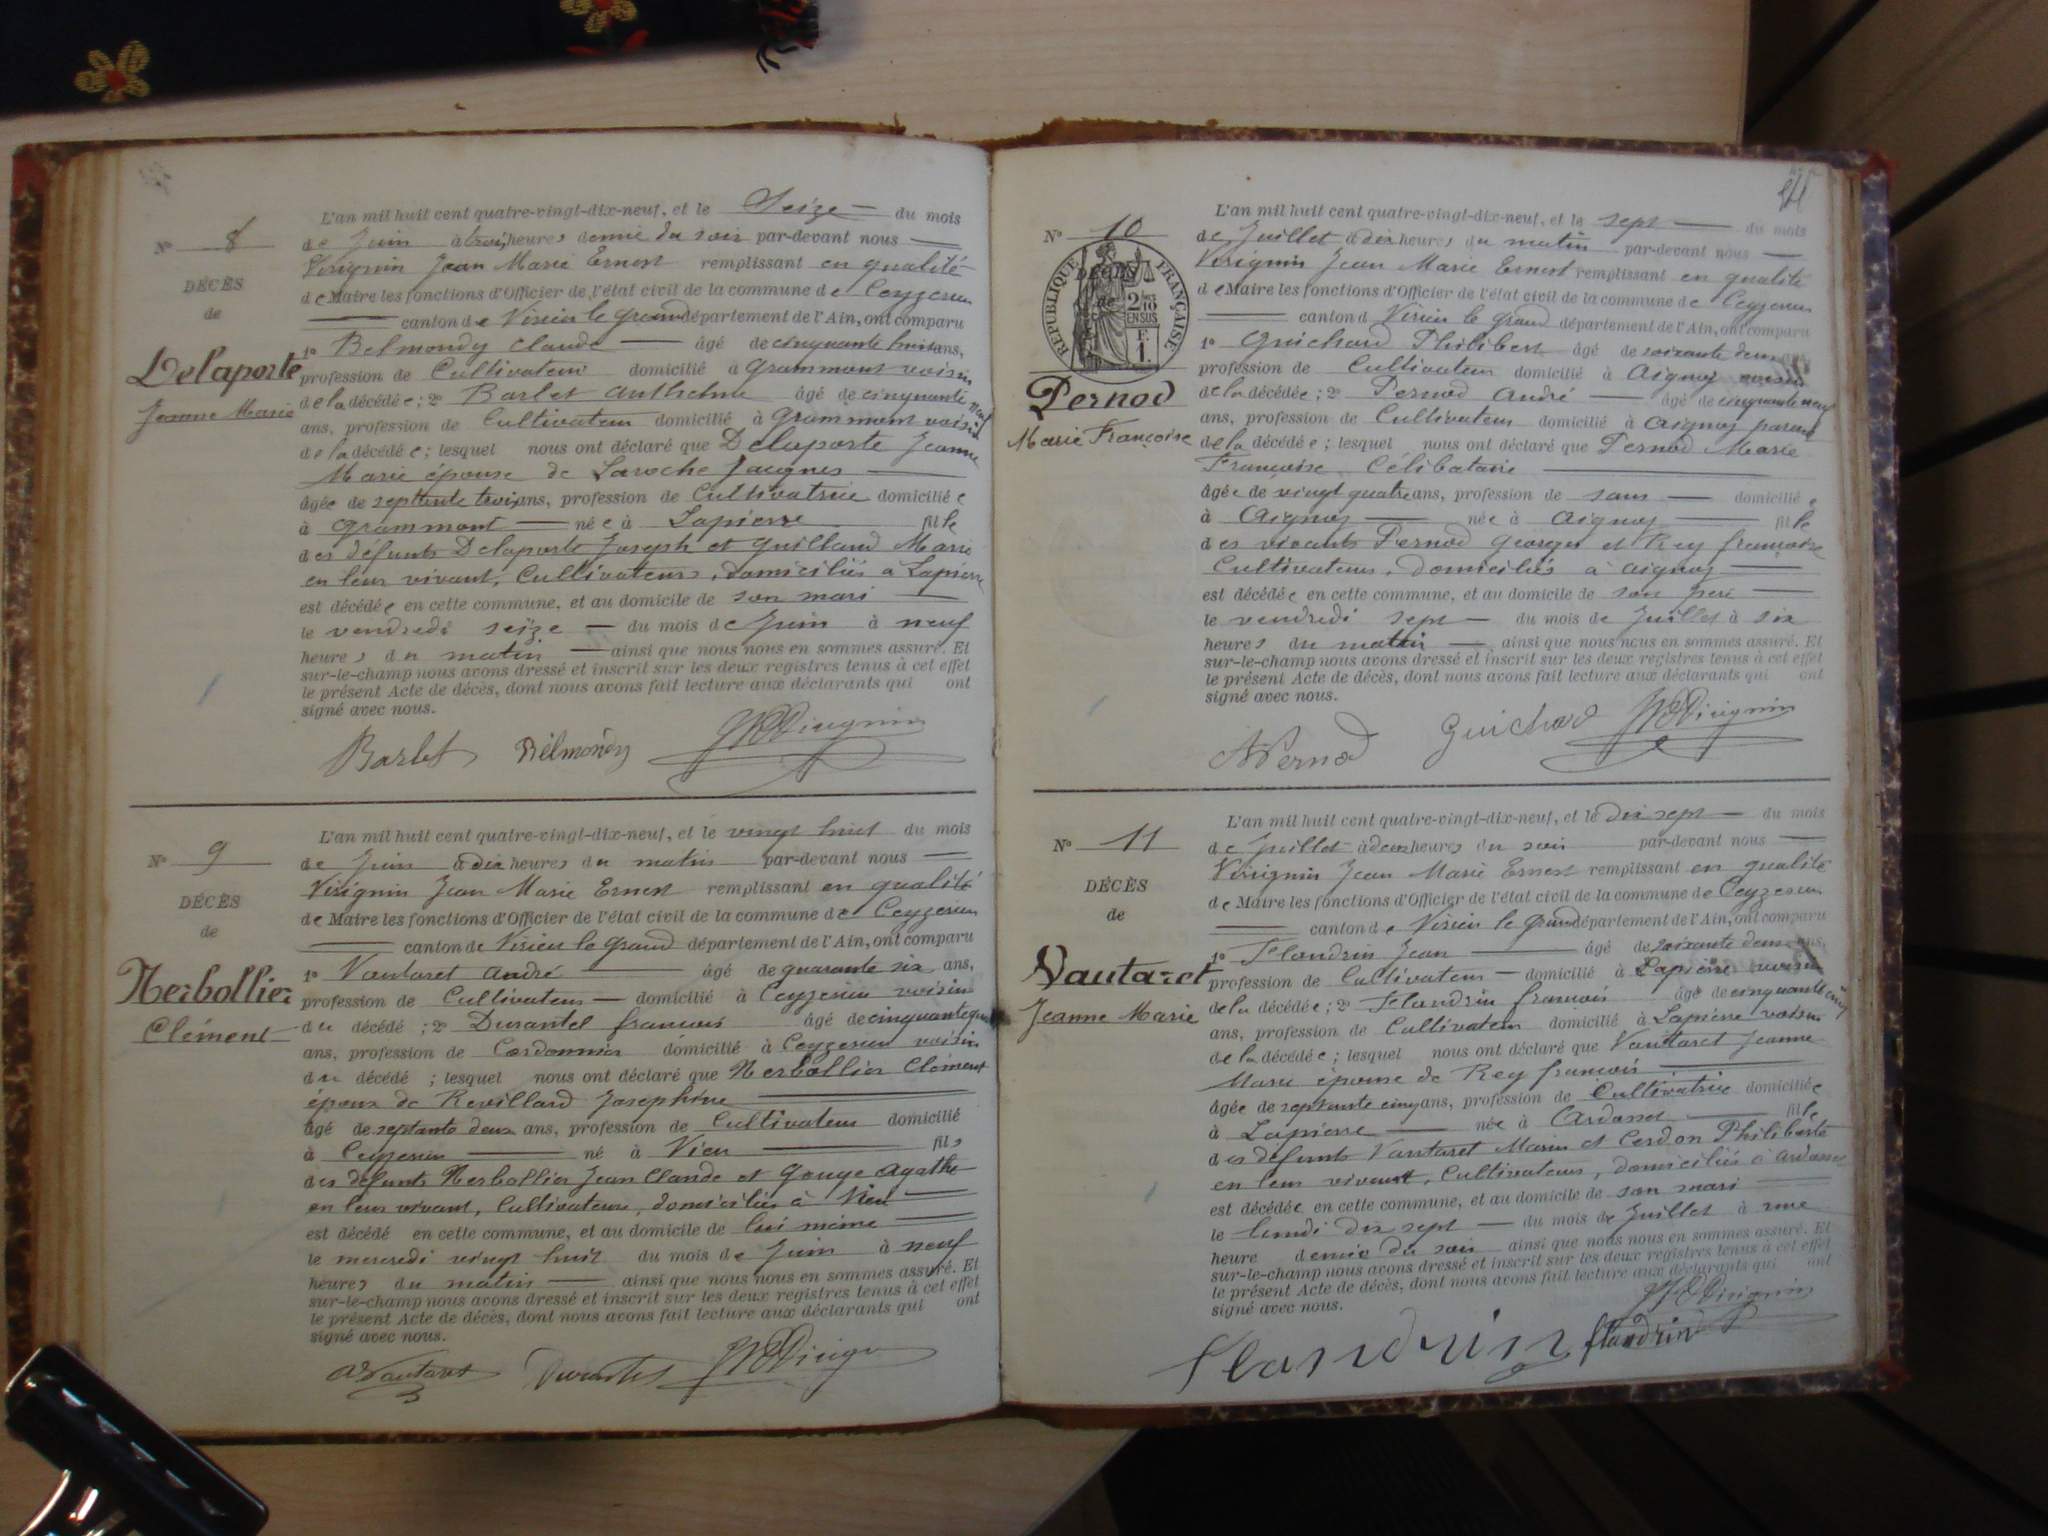 N° 8
DÉCÈS
de
Delaporte
Jeanne Marie
L'an mil huit cent quatre-vingt-dix-neuf, et le Seize du mois
de Juin à trois heures demie du soir par-devant nous
Virignin Jean Marie Ernest remplissant en qualité
de Maire les fonctions d'Officier de l'état civil de la commune de Ceyzerieu
canton de Virieu le Grand département de l'Ain, ont comparu
1° Belmondy Claude âgé de cinquante huit ans,
profession de Cultivateur domicilié à Grammont voisin
de la décédée; 2° Barlet Anthelme âgé de cinquante neuf
ans, profession de Cultivateur domicilié à Grammont voisin
de la décédée; lesquel nous ont déclaré que Delaporte Jeanne
Marie épouse de Laroche Jacques
âgée de septante trois ans, profession de Cultivatrice domiciliée
à Grammont née à Lapierre fille
des défunts Delaporte Joseph et Guilland Marie
en leur vivant, Cultivateurs, domiciliés à Lapierre
est décédée en cette commune, et au domicile de son mari
le vendredi seize du mois de Juin à neuf
heures du matin ainsi que nous nous en sommes assuré. Et
sur-le-champ nous avons dressé et inscrit sur les deux registres tenus à cet effet
le présent Acte de décès, dont nous avons fait lecture aux déclarants qui ont
signé avec nous.
Barlet Belmondy JM Virignin
N° 9
DÉCÈS
de
Nerbollier
Clément
L'an mil huit cent quatre-vingt-dix-neuf, et le vingt huit du mois
de Juin à dix heures du matin par-devant nous
Virignin Jean Marie Ernest remplissant en qualité
de Maire les fonctions d'Officier de l'état civil de la commune de Ceyzerieu
canton de Virieu le Grand département de l'Ain, ont comparu
1° Vautaret André âgé de quarante six ans,
profession de Cultivateur domicilié à Ceyzerieu voisin
du décédé; 2° Durantel françois âgé de cinquante
ans, profession de Cordonnier domicilié à Ceyzerieu voisin
du décédé; lesquel nous ont déclaré que Nerbollier Clément
époux de Revillard Joséphine
âgé de septante deux ans, profession de Cultivateur domicilié
à Ceyzerieu né à Vieu fils
des défunts Nerbollier Jean Claude et Gouge Agathe
en leur vivant, Cultivateurs, domiciliés à Vieu
est décédé en cette commune, et au domicile de lui même
le mercredi vingt huit du mois de Juin à neuf
heures du matin ainsi que nous nous en sommes assuré. Et
sur-le-champ nous avons dressé et inscrit sur les deux registres tenus à cet effet
le présent Acte de décès, dont nous avons fait lecture aux déclarants qui ont
signé avec nous.
A Vautaret Durantel
N° 10
DÉCÈS
de
RÉPUBLIQUE FRANÇAISE
2/10 EN SUS
F. 1.
Pernod
Marie Françoise
L'an mil huit cent quatre-vingt-dix-neuf, et le sept du mois
de Juillet à dix heures du matin par-devant nous
Virignin Jean Marie Ernest remplissant en qualité
de Maire les fonctions d'Officier de l'état civil de la commune de Ceyzerieu
canton d Virieu le Grand département de l'Ain, ont comparu
1° Guichard Philibert âgé de soixante deux ans
profession de Cultivateur domicilié à Aignoz voisin
de la décédée; 2° Pernod André âgé de cinquante neuf
ans, profession de Cultivateur domicilié à Aignoz parent
de la décédée; lesquel nous ont déclaré que Pernod Marie
Françoise Célibataire
âgée de vingt quatre ans, profession de sans domiciliée
à Aignoz née à Aignoz fille
des vivants Pernod Georges et Rey françoise
Cultivateurs, domiciliés à Aignoz
est décédée en cette commune, et au domicile de son père
le vendredi sept du mois de Juillet à six
heures du matin ainsi que nous nous en sommes assuré. Et
sur-le-champ nous avons dressé et inscrit sur les deux registres tenus à cet effet
le présent Acte de décès, dont nous avons fait lecture aux déclarants qui ont
signé avec nous.
A Pernod Guichard JM Virignin
N° 11
DÉCÈS
de
Vautaret
Jeanne Marie
L'an mil huit cent quatre-vingt-dix-neuf, et le dix sept du mois
de Juillet à deux heures du soir par-devant nous
Virignin Jean Marie Ernest remplissant en qualité
de Maire les fonctions d'Officier de l'état civil de la commune de Ceyzerieu
canton de Virieu le Grand département de l'Ain, ont comparu
1° Flandrin Jean âgé de soixante deux ans,
profession de Cultivateur domicilié à Lapierre voisin
de la décédée; 2° Flandrin françois âgé de cinquante cinq
ans, profession de Cultivateur domicilié à Lapierre voisin
de la décédée; lesquel nous ont déclaré que Vautaret Jeanne
Marie épouse de Rey françois
âgée de septante cinq ans, profession de Cultivatrice domiciliée
à Lapierre née à Ardosset fille
des défunts Vautaret Marin et Cerdon Philiberte
en leur vivant, Cultivateurs, domiciliés à Ardosset
est décédée en cette commune, et au domicile de son mari
le lundi dix sept du mois de Juillet à une
heure demie du soir ainsi que nous nous en sommes assuré. Et
sur-le-champ nous avons dressé et inscrit sur les deux registres tenus à cet effet
le présent Acte de décès, dont nous avons fait lecture aux déclarants qui ont
signé avec nous.
Flandrin flandrin Virignin